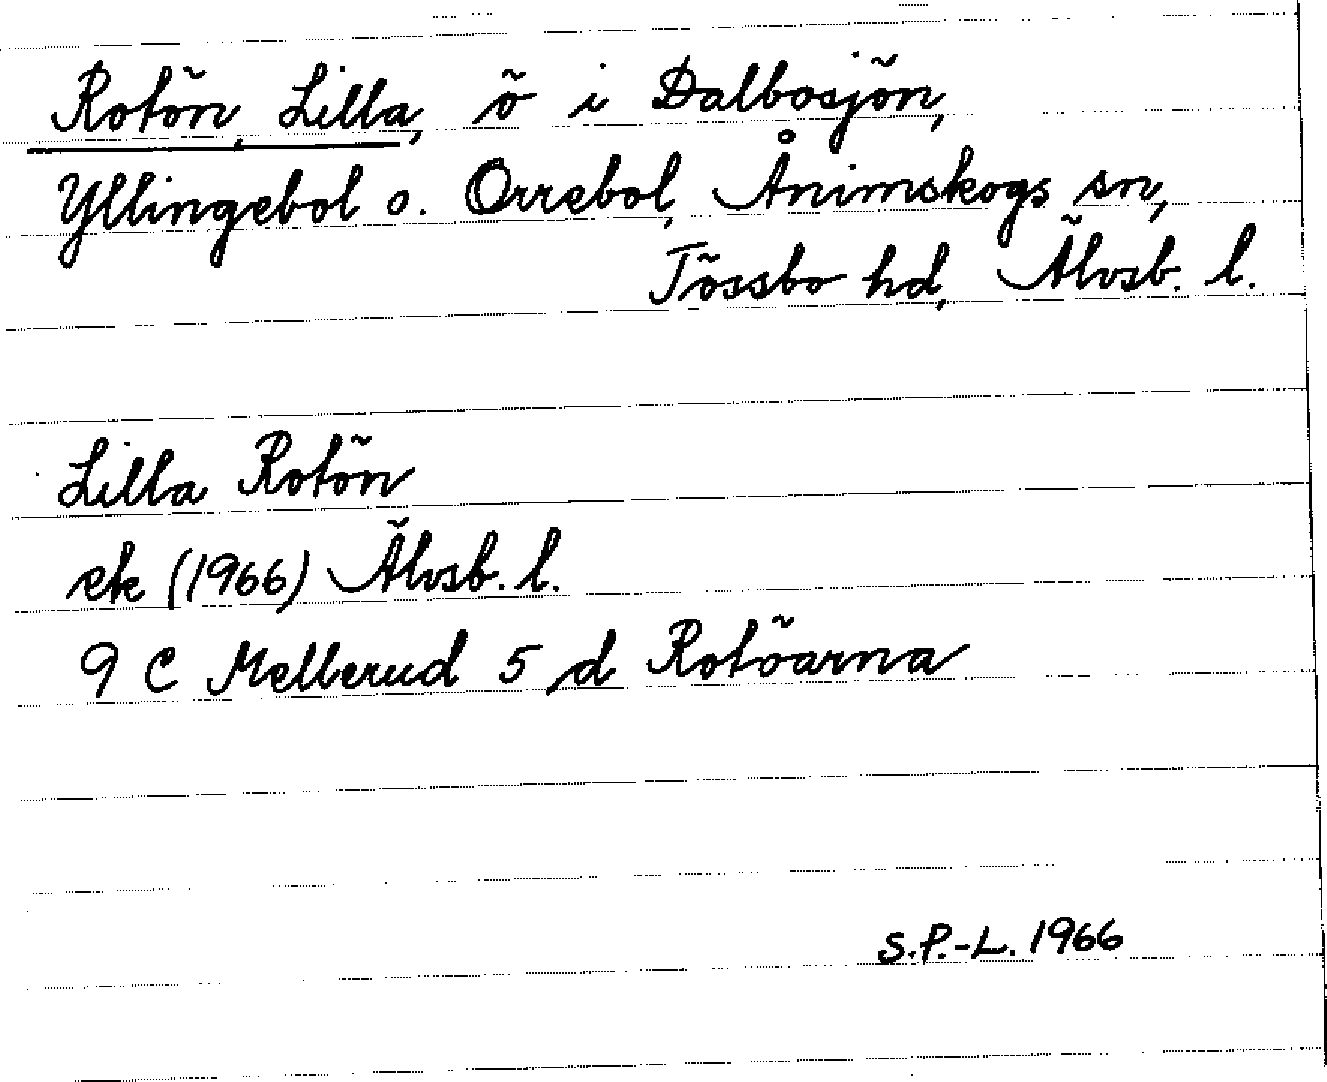 Rotön, Lilla, ö i Dalbosjön,
Yllingebol o. Orrebol, Ånimskogs sn,
Tössbo hd, Älvsb. l.
Lilla Rotön
ek (1966) Älvsb. l.
9 C Mellerud 5 d Rotöarna
S.P.-L. 1966